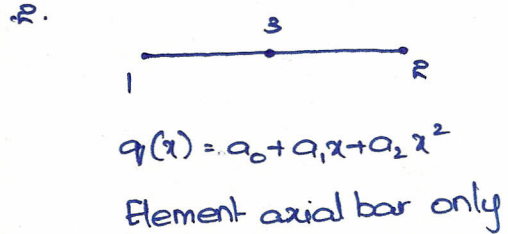 2.
3
1 2
q(x) = a₀ + a₁x + a₂x²
Element axial bar only